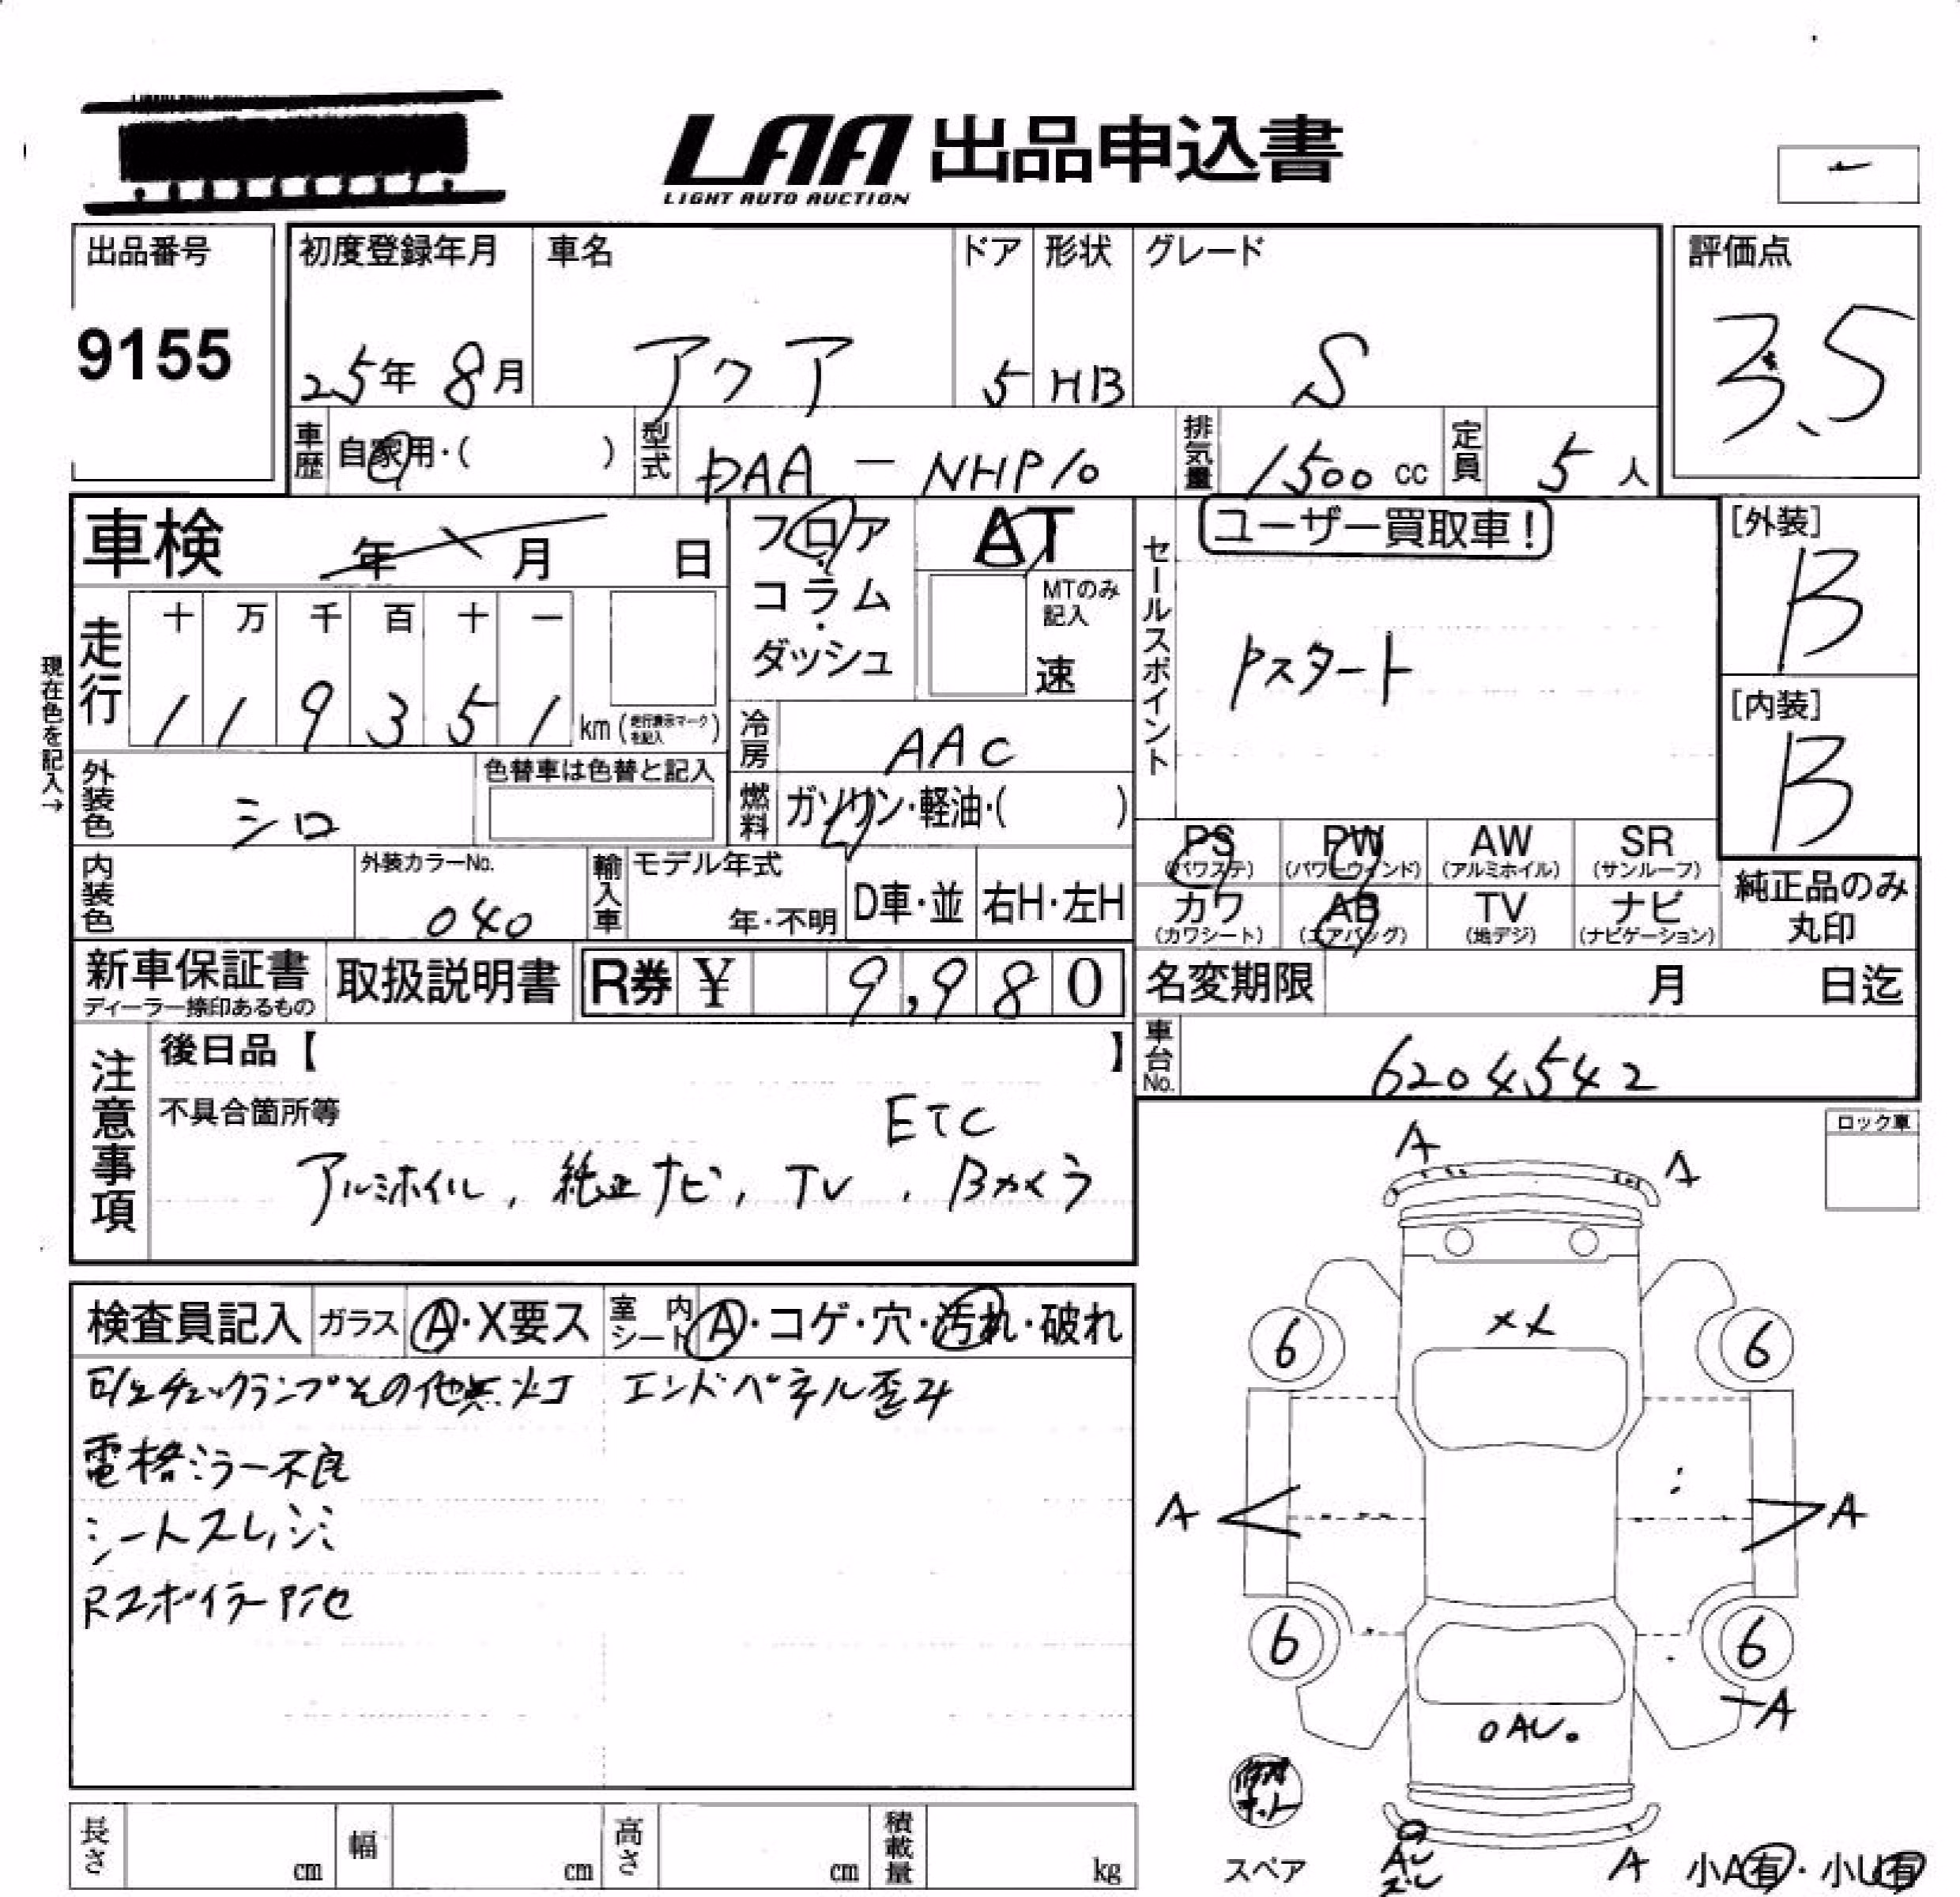 LAA 出品申込書
LIGHT AUTO AUCTION
出品番号
9155
初度登録年月
25年 8月
車名
アクア
ドア
5
形状
HB
グレード
S
評価点
3.5
車歴 自家用・( )
型式 DAA-NHP10
排気量 1500 cc
定員 5 人
車検 年 月 日
フロア・コラム・ダッシュ
AT
MTのみ記入
速
セールスポイント
ユーザー買取車!
Pスタート
[外装]
B
[内装]
B
現在色を記入→
走行
十 万 千 百 十 一
1 1 9 3 5 1 km (走行表示マークを記入)
冷房 AAC
外装色 シロ
色替車は色替と記入
燃料 ガソリン・軽油・( )
内装色
外装カラーNo.
040
輸入車
モデル年式
年・不明
D車・並
右H・左H
PS (パワステ)
PW (パワーウィンド)
AW (アルミホイル)
SR (サンルーフ)
カワ (カワシート)
AB (エアバッグ)
TV (地デジ)
ナビ (ナビゲーション)
純正品のみ丸印
新車保証書
ディーラー捺印あるもの
取扱説明書
R券 ¥ 9,980
名変期限 月 日迄
車台No. 6204542
注意事項
後日品【 】
不具合箇所等
ETC
アルミホイル, 純正ナビ, TV, Bカメラ
ロック車
検査員記入
ガラス A・X要ス
室内シート A・コゲ・穴・汚れ・破れ
チェックランプその他無灯 エンドパネル歪み
電格ミラー不良
シートスレ,シミ
Rスポイラー
A A
6 6
XX
A A
6 6
A
AU
スペア
AU
A
小A有・小U有
長さ cm
幅 cm
高さ cm
積載量 kg